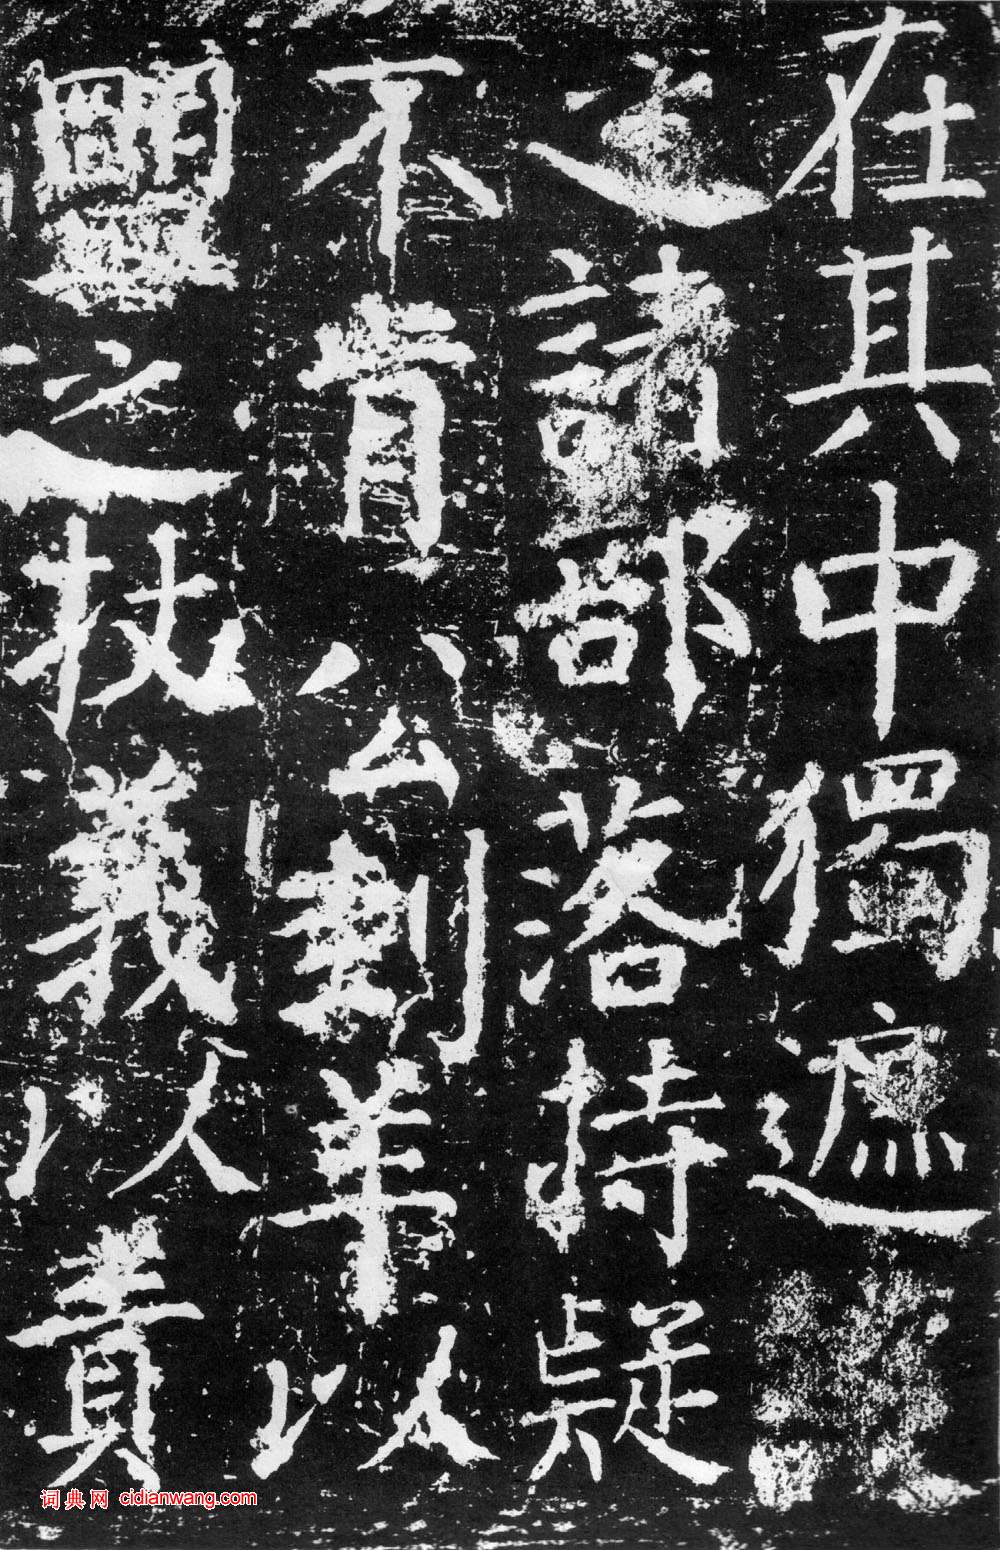 在其中獨遮
之諸部落持疑
不肯公羊以
盟之杖義以責
词典网 cidianwang.com